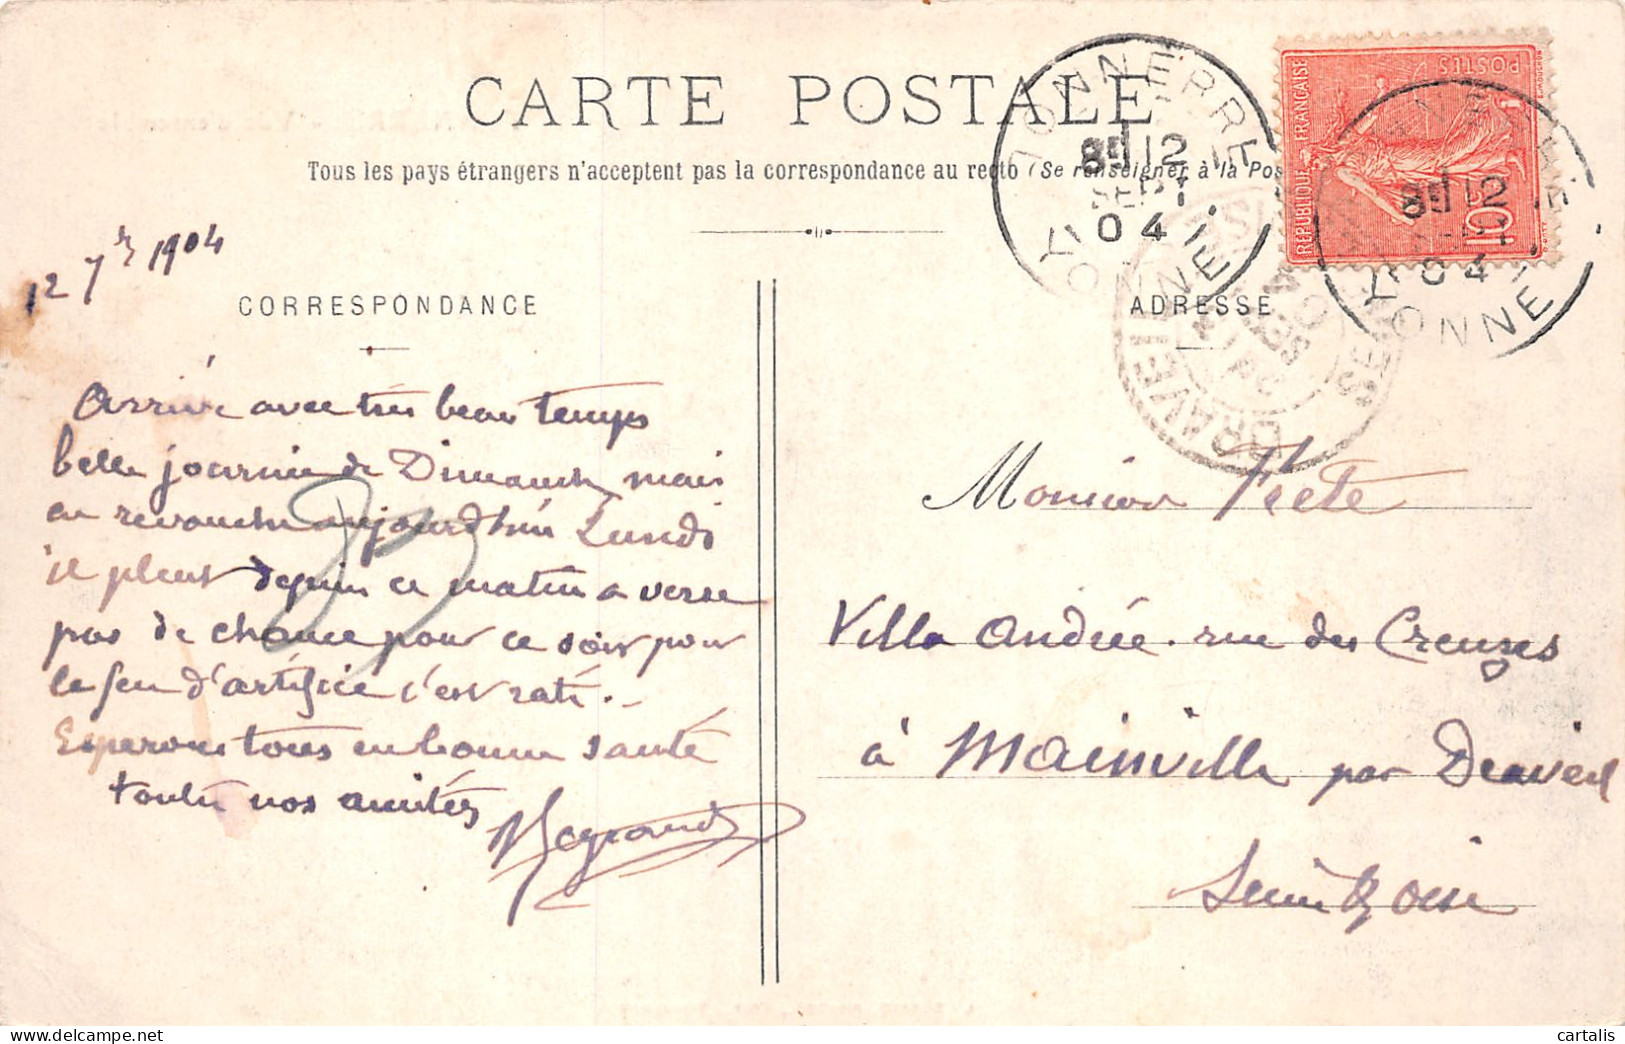 CARTE POSTALE
Tous les pays étrangers n'acceptent pas la correspondance au recto (Se renseigner à la Pos
12 7re 1904
CORRESPONDANCE
Arrivé avec très beau temps
belle journée de Dimanche, mais
en revanche aujourd'hui Lundi
il pleut depuis ce matin a verse
pas de chance pour ce soir pour
le feu d'artifice c'est raté.
Esperons tous en bonne santé
toutes nos amitiés
Legrand
ADRESSE
Monsieur Fieté
Villa Andrée. rue des Creuzes
à Mainville par Draveil
Seine & Oise
TONNERRE
8 12
SEPT
04
YONNE
REPUBLIQUE FRANÇAISE
POSTES
10
TONNERRE
8 12
SEPT
04
YONNE
DRAVEIL
SEINE-ET-OISE
SEPT
04
cartalis